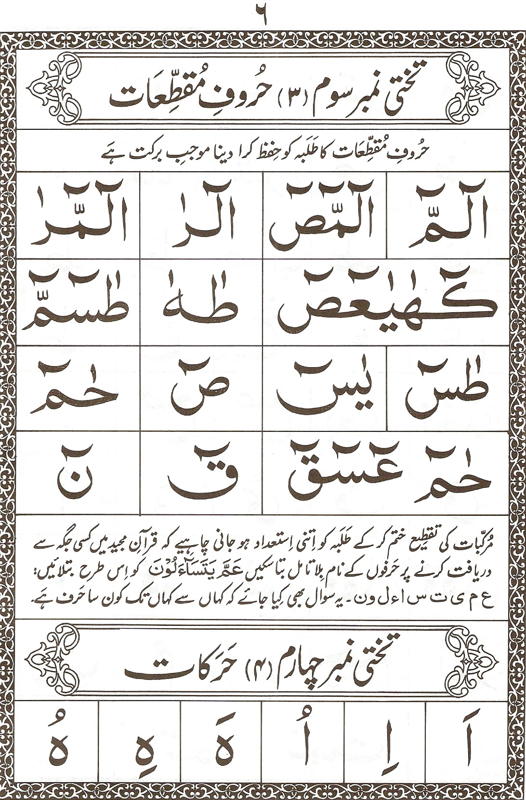 ۶
تختی نمبر سوم (۳) حُروفِ مُقطِّعَات
حُروفِ مُقطِّعَات کا طَلَبہ کو حِفظ کرا دینا موجبِ برکت ہے
الٓمّٓ الٓمّٓصٓ الٓرٰ الٓمّٓرٰ
كٓهٰيٰعٓصٓ طٰهٰ طٰسٓمّٓ
طٰسٓ يٰسٓ صٓ حٰمٓ
حٰمٓ عٓسٓقٓ قٓ نٓ
مُرکّبات کی تقطیع ختم کر کے طَلَبہ کو اِتنی اِستعداد ہو جانی چاہیے کہ قرآنِ مجید میں کسی جگہ سے
دریافت کرنے پر حَرفوں کے نام بِلا تامل بتا سکیں عَمَّ یَتَسَآءَلُوْنَ کو اِس طرح بتلائیں:
ع م ی ت س ا ء ل و ن۔ یہ سوال بھی کِیا جائے کہ کہاں سے کہاں تک کون سا حَرف ہے۔
تختی نمبر چہارم (۴) حَرَکات
اَ اِ اُ ہَ ہِ ہُ